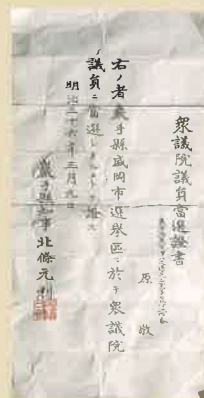 衆議院議員當選證書
原 敬
右ノ者岩手縣盛岡市選擧區ニ於テ衆議院
議員ニ當選シ
明治三十六年三月
巖手縣知事北條元利